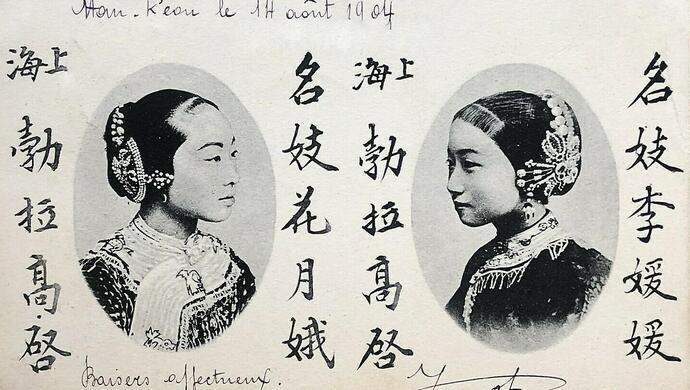 Han-K'eou le 14 août 1904
名妓李媛媛
上海勃拉高啓
名妓花月娥
上海勃拉高啓
Baisers affectueux.